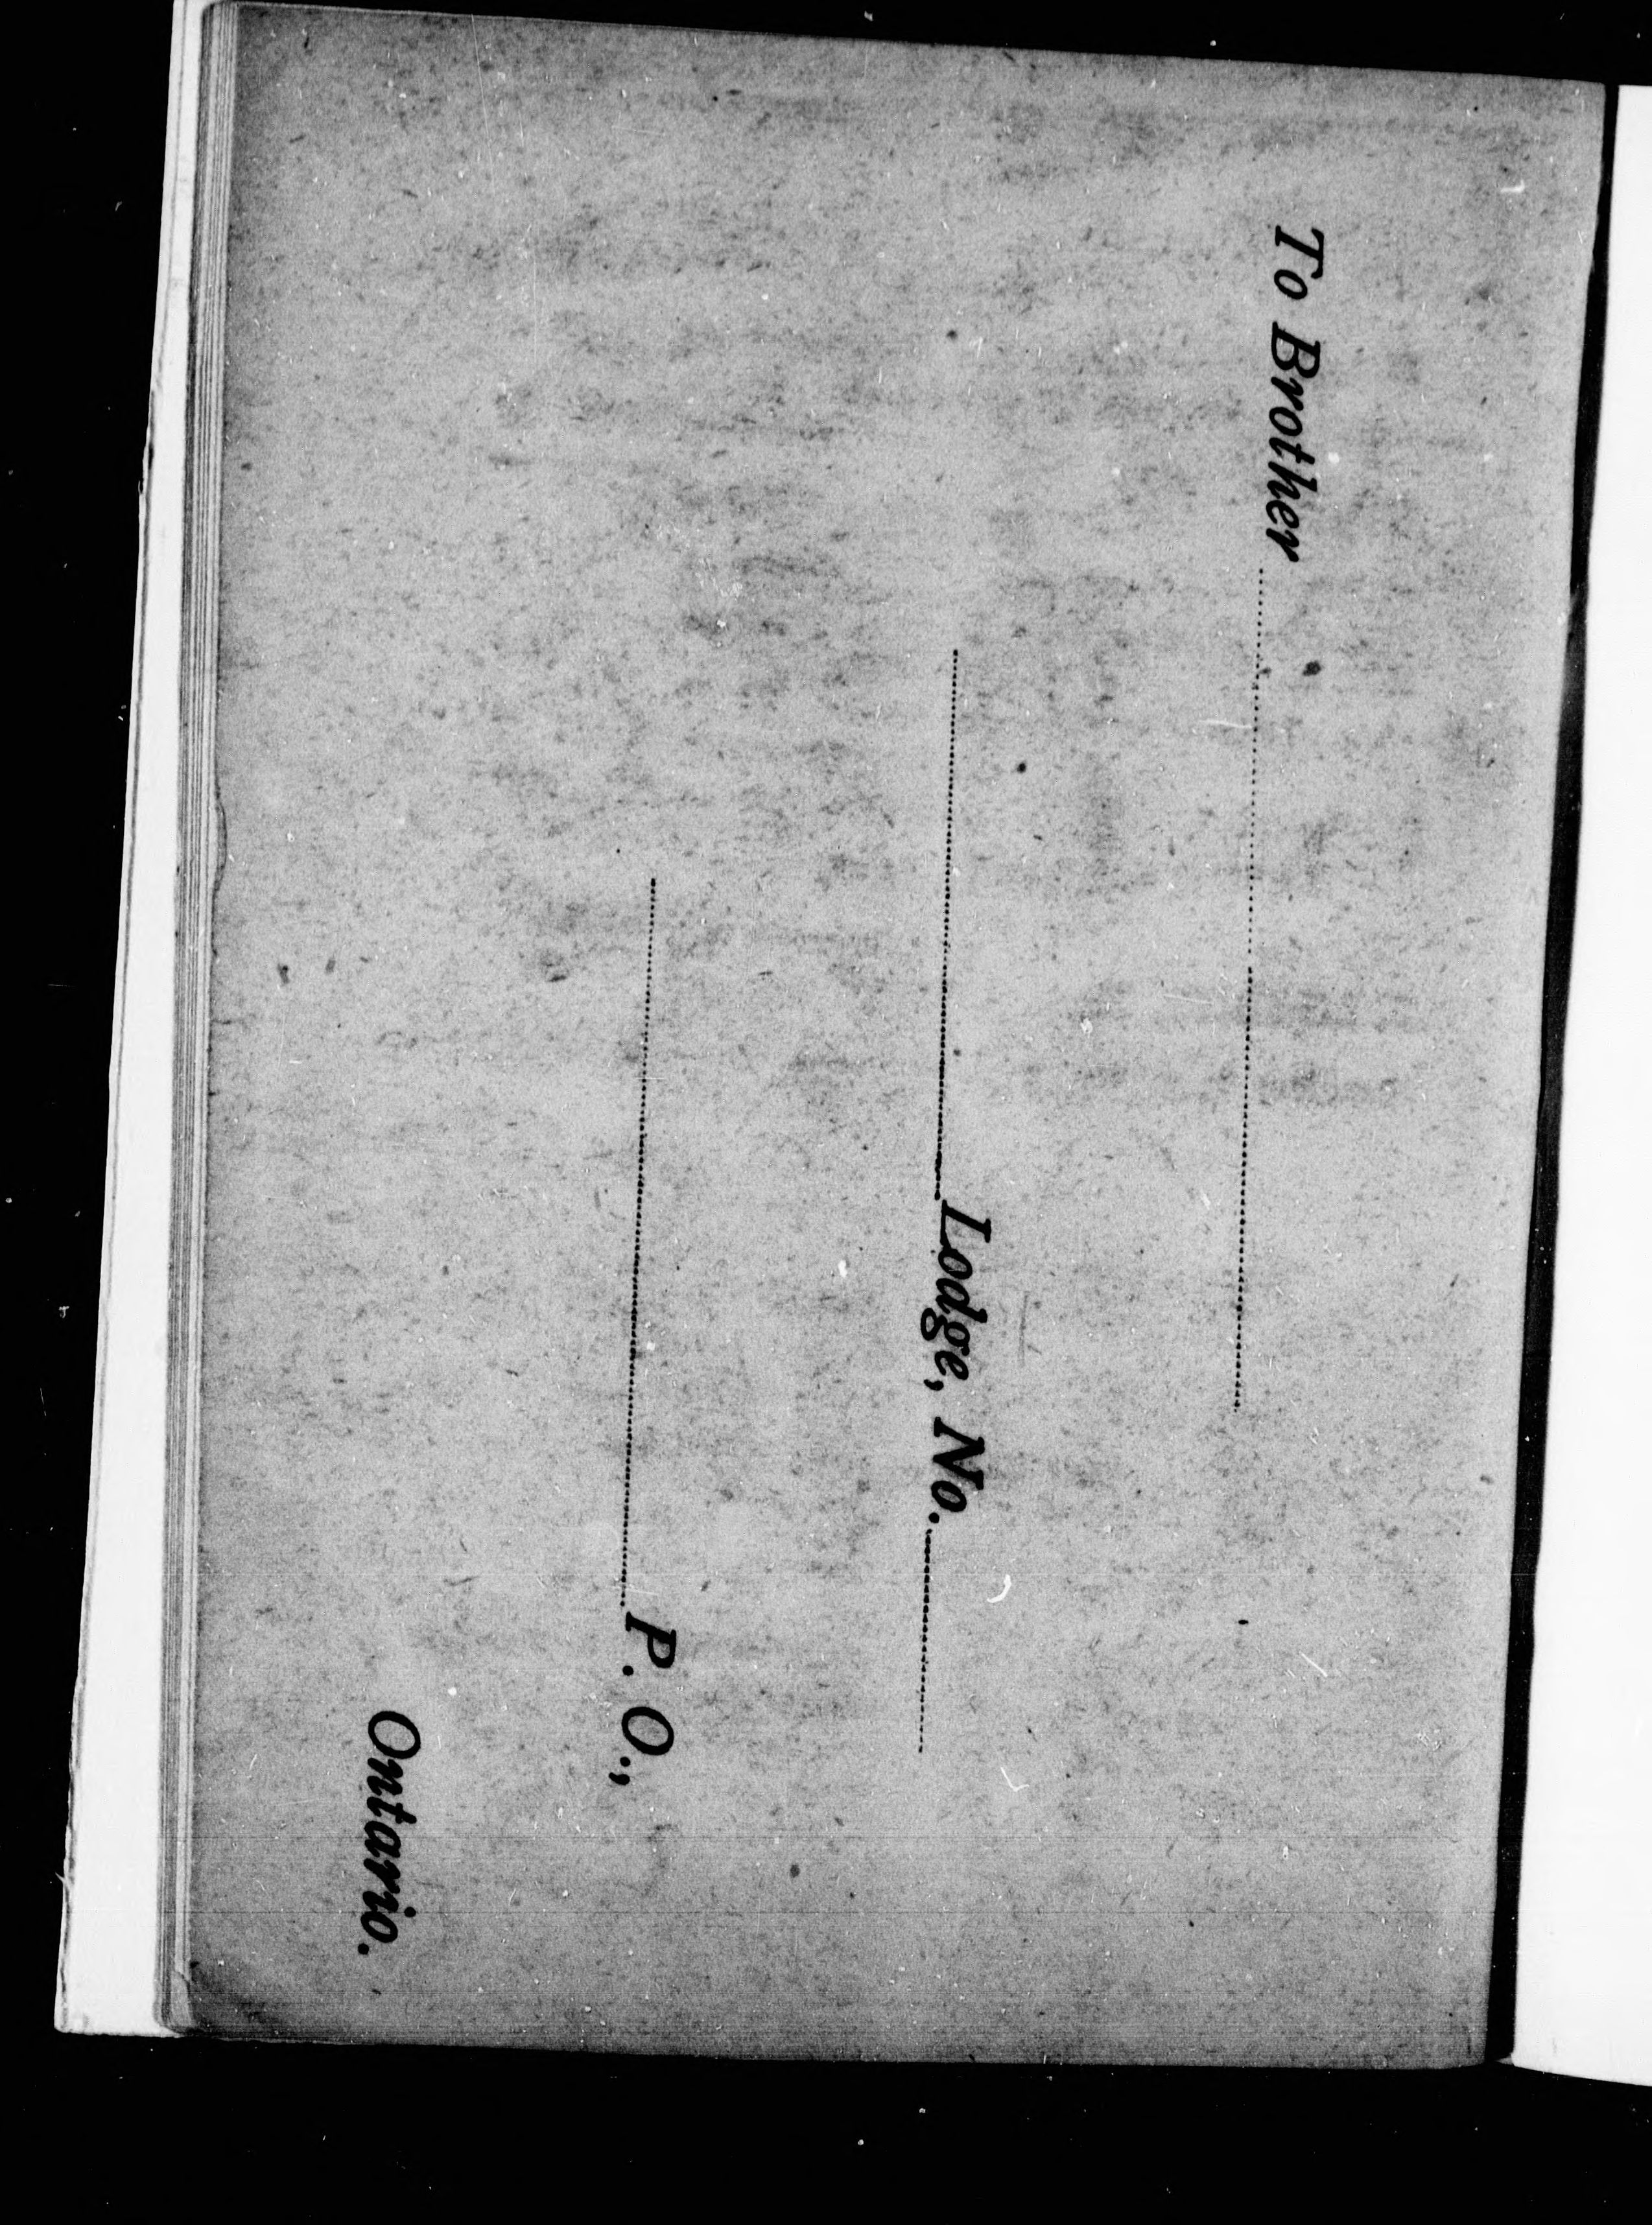 To Brother
Lodge, No.
P. O.,
Ontario.